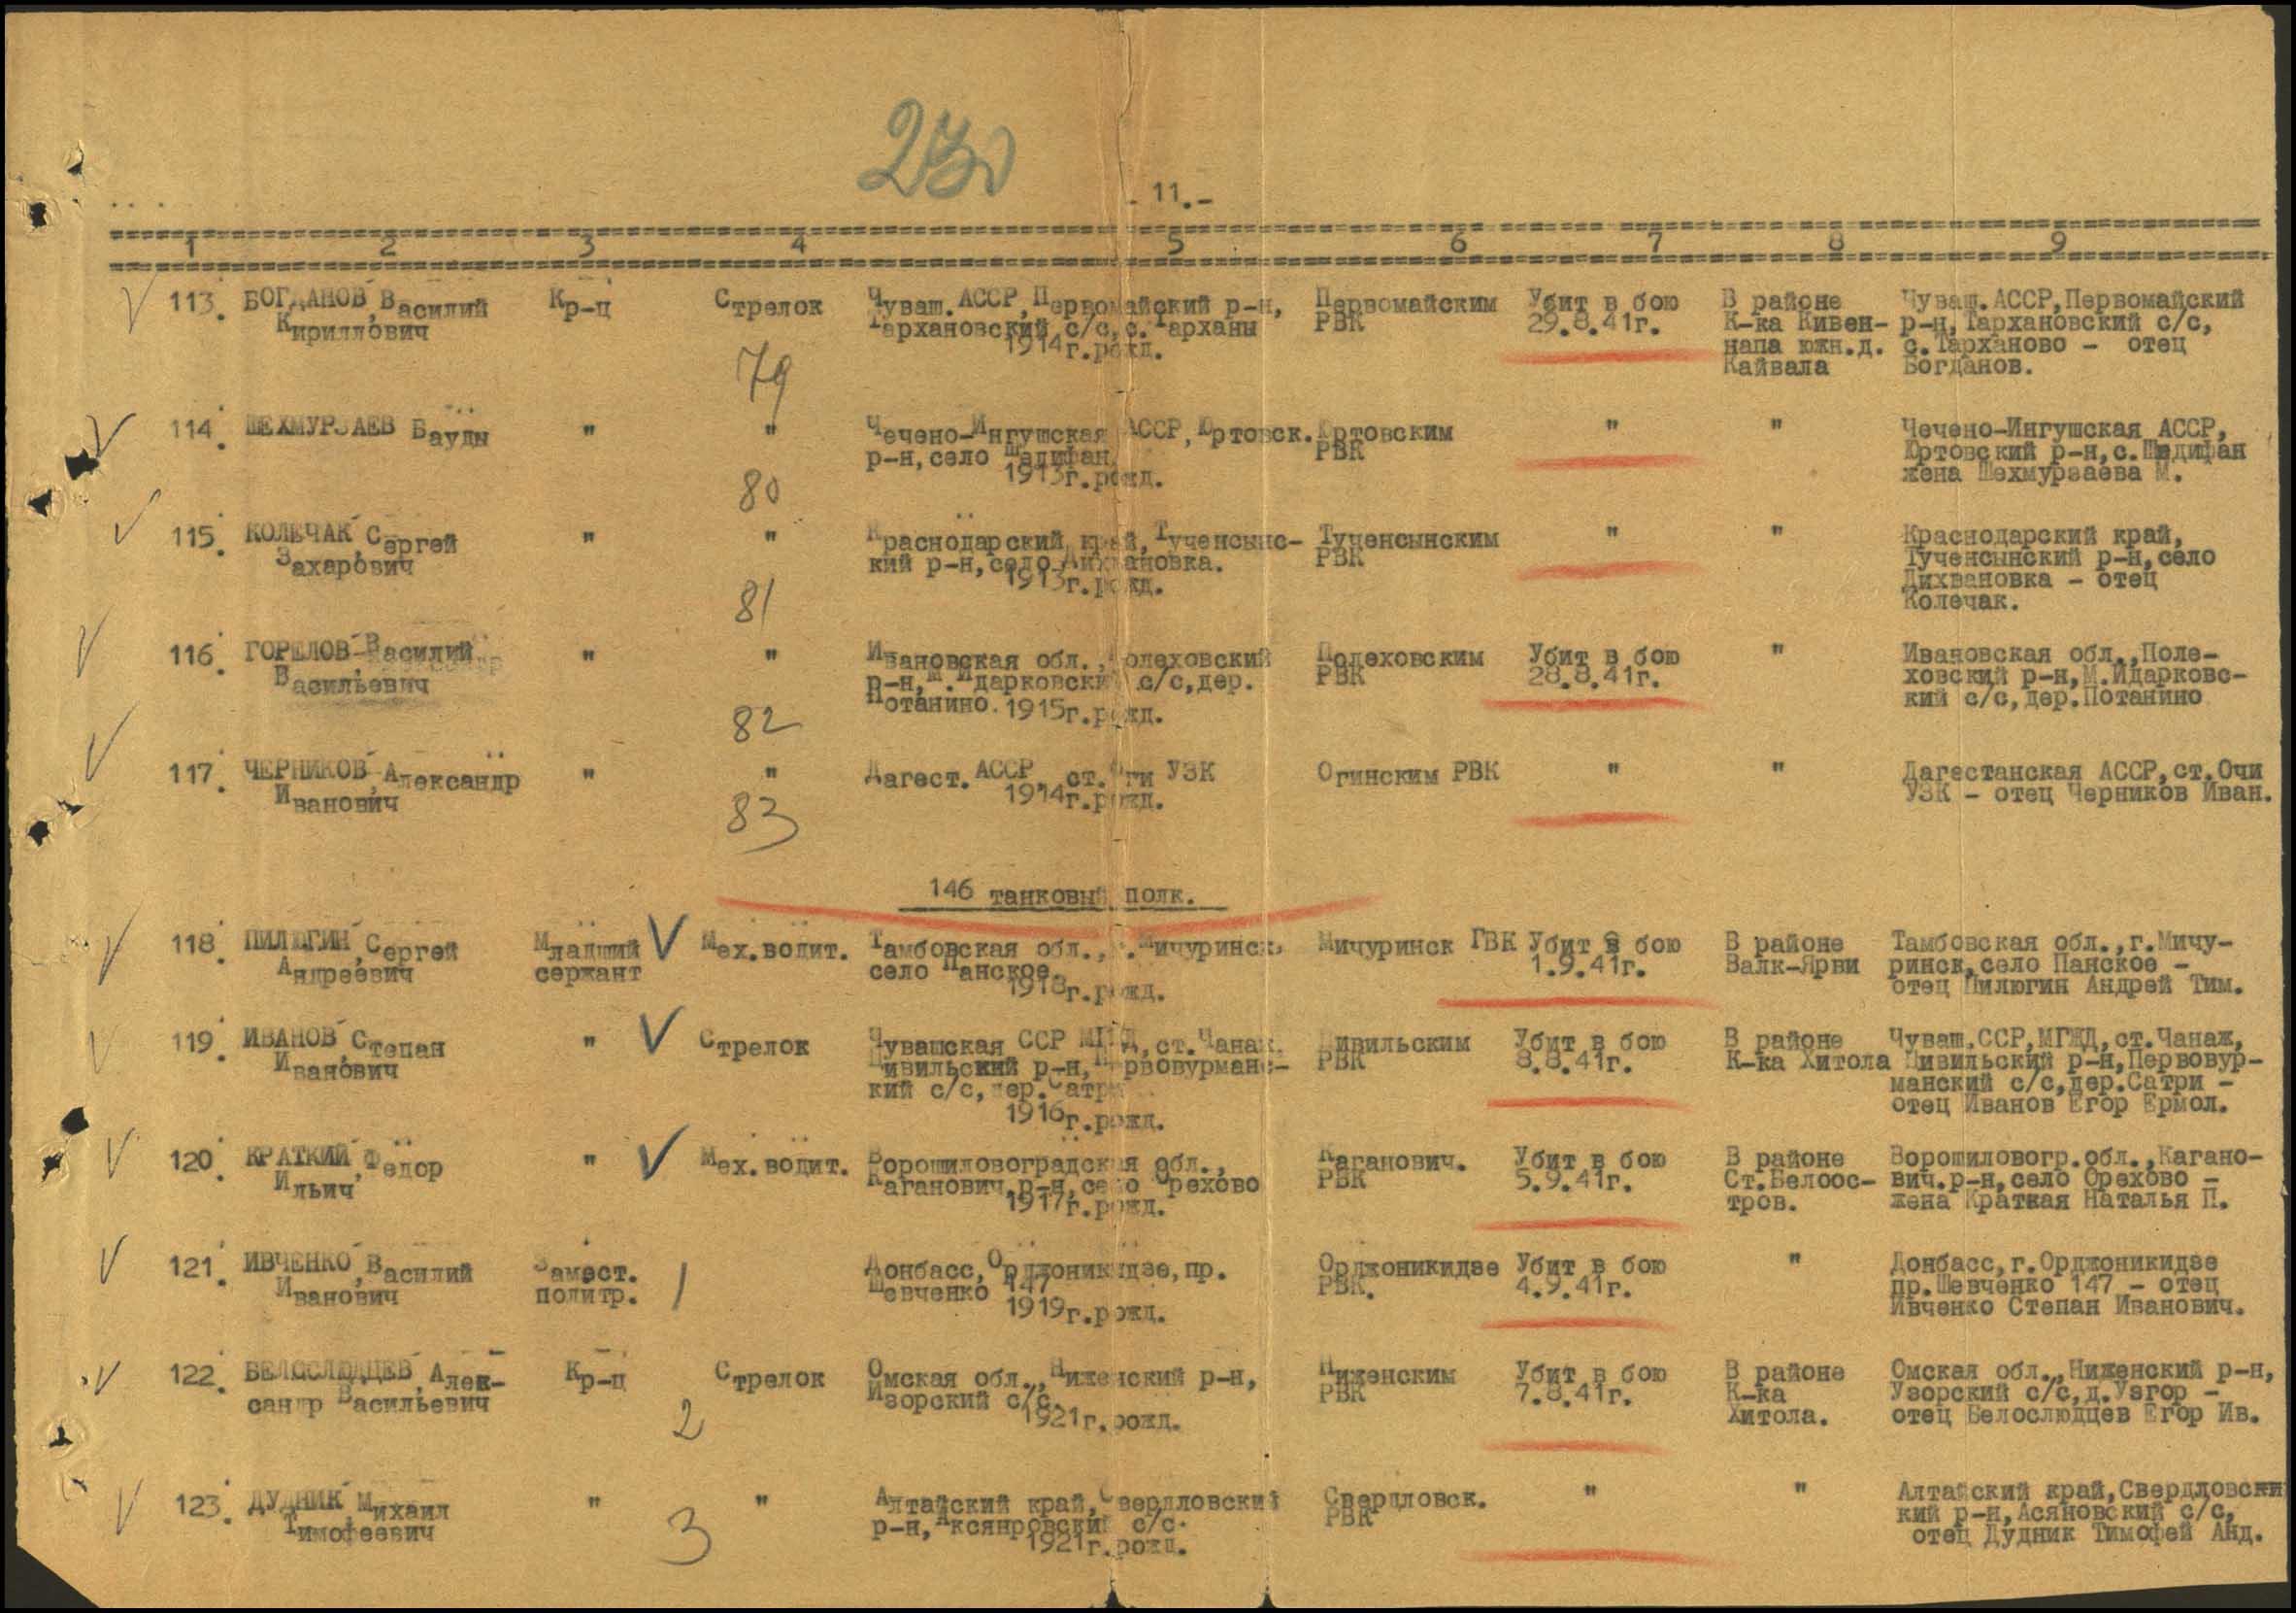 230
- 11.-
1 2 3 4 5 6 7 8 9
113. БОГДАНОВ, Василий Кр-ц Стрелок Чуваш. АССР, Первомайский р-н, Первомайским Убит в бою В районе Чуваш. АССР, Первомайский
Кириллович Тархановский с/с, с. Тарханы РВК 29.8.41г. К-ка Кивен- р-н, Тархановский с/с,
1914г.рожд. напа южн.д. с.Тарханово - отец
79 Кайвала Богданов.
114. ШЕХМУРЗАЕВ Бауды " " Чечено-Ингушская АССР, Юртовск. Юртовским " " Чечено-Ингушская АССР,
р-н, село Шедифан РВК Юртовский р-н, с. Шедифан
1913г.рожд. жена Шехмурзаева М.
80
115. КОЛЕЧАК, Сергей " " Краснодарский край, Тученсынс- Тученсынским " " Краснодарский край,
Захарович кий р-н, село Дихвановка. РВК Тученсынский р-н, село
1913г.рожд. Дихвановка - отец
81 Колечак.
116. ГОРЕЛОВ Василий " " Ивановская обл., Полеховский Полеховским Убит в бою " Ивановская обл., Поле-
Васильевич р-н, М. Идарковский с/с, дер. РВК 28.8.41г. ховский р-н, М.Идарковс-
Потанино. 1915г.рожд. кий с/с, дер.Потанино
82
117. ЧЕРНИКОВ, Александр " " Дагест. АССР, ст. Оги УЗК Огинским РВК " " Дагестанская АССР, ст.Очи
Иванович 1914г.рожд. УЗК - отец Черников Иван.
83
146 танковый полк.
118. ПИЛЮГИН, Сергей Младший V Мех.водит. Тамбовская обл., г. Мичуринск, Мичуринск ГВК Убит в бою В районе Тамбовская обл., г.Мичу-
Андреевич сержант село Панское 1.9.41г. Валк-Ярви ринск, село Панское -
1918г.рожд. отец Пилюгин Андрей Тим.
119. ИВАНОВ, Степан " V Стрелок Чувашская ССР МГЖД, ст.Чанаж. Цивильским Убит в бою В районе Чуваш.ССР, МГЖД, ст.Чанаж,
Иванович Цивильский р-н, Первовурманс- РВК 8.8.41г. К-ка Хитола Цивильский р-н, Первовур-
кий с/с, дер. Сатри манский с/с, дер.Сатри -
1916г.рожд. отец Иванов Егор Ермол.
120. КРАТКИЙ, Фёдор " V Мех.водит. Ворошиловоградская обл., Каганович. Убит в бою В районе Ворошиловогр.обл., Кагано-
Ильич Каганович.р-н, село Орехово РВК 5.9.41г. Ст.Белоос- вич.р-н, село Орехово -
1917г.рожд. тров. жена Краткая Наталья П.
121. ИВЧЕНКО, Василий Замест. Донбасс, Орджоникидзе, пр. Орджоникидзе Убит в бою " Донбасс, г.Орджоникидзе
Иванович политр. 1 Шевченко 147 РВК. 4.9.41г. пр.Шевченко 147 - отец
1919г.рожд. Ивченко Степан Иванович.
122. БЕЛОСЛЮДЦЕВ, Алек- Кр-ц Стрелок Омская обл., Ниженский р-н, Ниженским Убит в бою В районе Омская обл., Ниженский р-н,
сандр Васильевич Изорский с/с. РВК 7.8.41г. К-ка Узорский с/с, д.Узгор -
2 1921г.рожд. Хитола. отец Белослюдцев Егор Ив.
123. ДУДНИК, Михаил " " Алтайский край, Свердловский Свердловск. " " Алтайский край, Свердловски
Тимофеевич р-н, Аксянровский с/с. РВК кий р-н, Асяновский с/с,
3 1921г.рожд. отец Дудник Тимофей Анд.